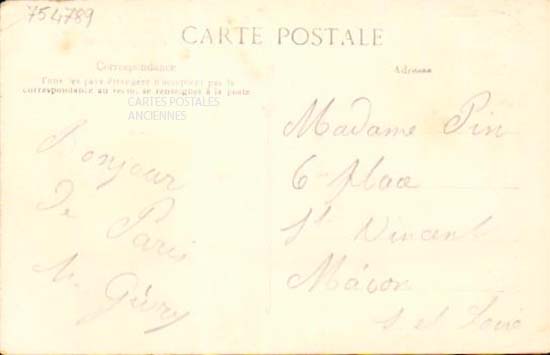 754789
CARTE POSTALE
Correspondance
Tous les pays étrangers n'acceptent pas la
correspondance au recto, se renseigner à la poste
CARTES POSTALES
ANCIENNES
Bonjour
de Paris
Adresse
Madame Pin
6 place
St Vincent
Mâcon
S et Loire